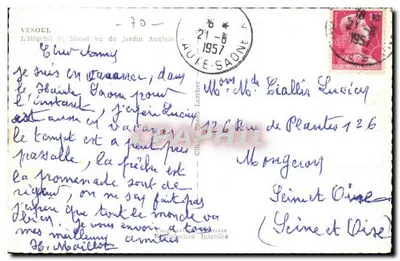 VESOUL
L'Hôpital vu du Jardin Anglais
- 70 -
21-6
1957
HAUTE-SAONE
Cher Amis
je suis en vacance, dans
la Haute Saone pour
l'instant, j'espère Lucien
est aussi en vacances
le tempt est a peut pes
passable, la pêche est
la promenade sont de
rigueur, on ne say fait pas
j'espere que tout le monde va
bien. Je vous envoir a tous
mes meilleurs amitiés
H. Maillot
Mons Me Tiallier Lucien
126 Rue de Plantes 126
Mongeron
Seine et Oise
(Seine et Oise)
Reproduction Interdite